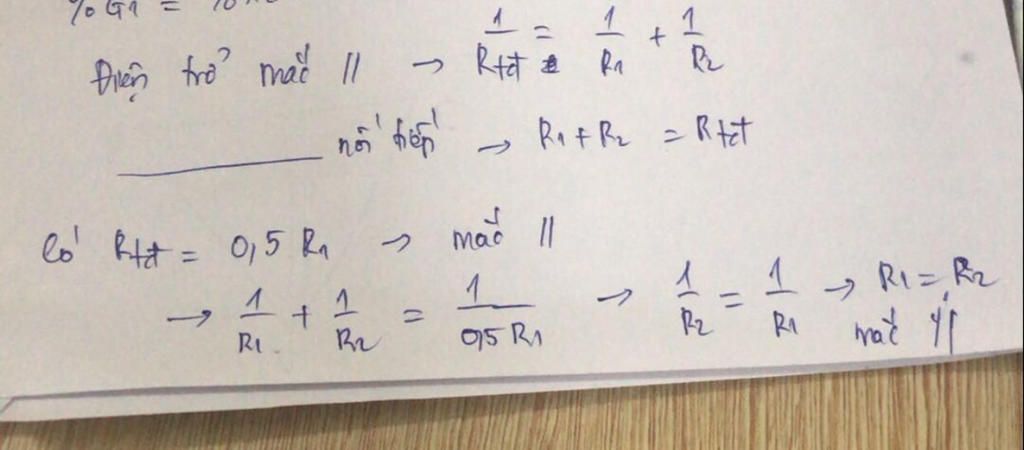 % G1 = %
Điện trở mắc // → 1/Rtđ = 1/R1 + 1/R2
________ nối tiếp → R1 + R2 = Rtđ
Có Rtđ = 0,5 R1 → mắc //
→ 1/R1 + 1/R2 = 1/0,5 R1 → 1/R2 = 1/R1 → R1 = R2
mắc //